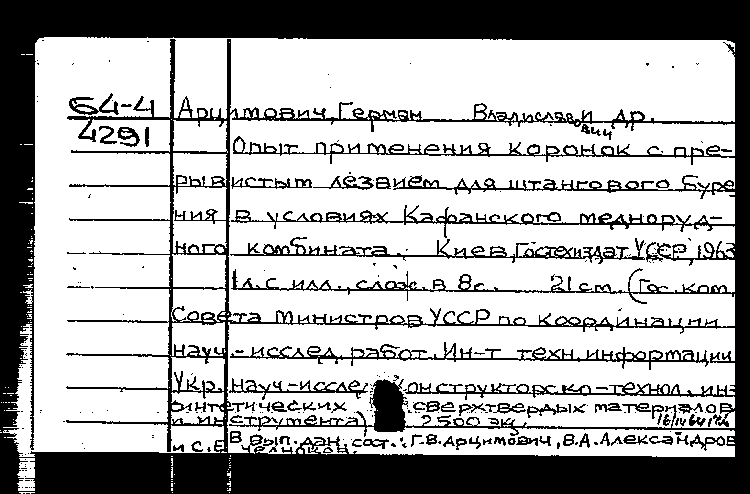 64-4
4291
Арцимович, Герман Владиславович и др.
Опыт применения коронок с пре-
рывистым лезвием для штангового буре
ния в условиях Кафанского меднoруд-
ного комбината. Киев, Гостехиздат УССР, 1963
1л. с илл., слож. в 8с. 21 см. (Гос. ком.
Совета Министров УССР по координации
науч.-исслед. работ. Ин-т техн. информации
Укр. науч.-иссле конструкторско-технол. ин-
синтетических сверхтвердых материалов
и инструмента) 2500 экз.
В вып. дан. сост.: Г.В. Арцимович, В.А. Александров
и С.Е.